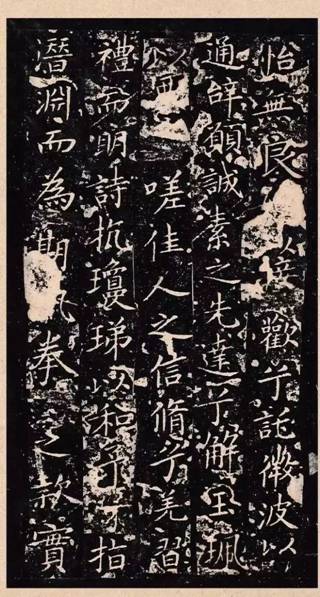 怡無良以接歡兮託微波以
通辭願誠素之先達兮解玉珮
以要嗟佳人之信脩兮羌習
禮而明詩抗瓊珶以和予兮指
潛淵而為期執拳之款實